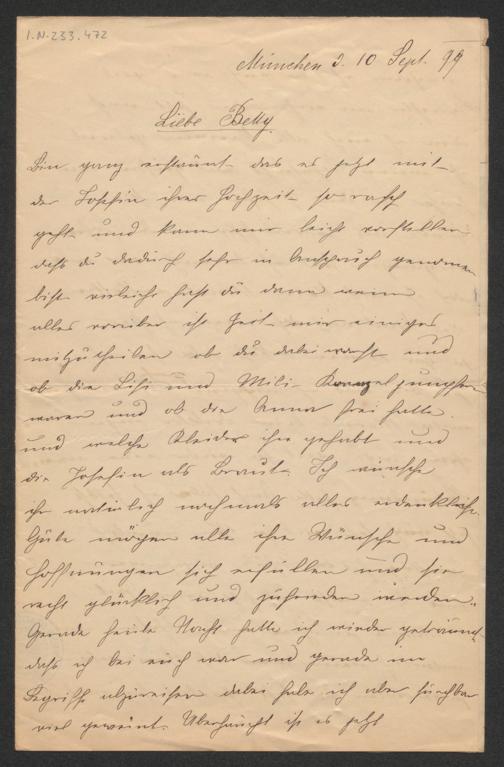 I.N. 233.472
München d. 10 Sept. 99
Liebe Betty.
Bin ganz erstaunt das es jetzt mit
der Josefin ihrer Hochzeit so rasch
geht und kann mir leicht vorstellen
daß du dadurch sehr in Anspruch genomen
bist vieleicht hast du dann wenn
alles vorüber ist Zeit mir einiges
mitzutheilen ob du dabei warst und
ob die Lisi und Mili Kranzeljungfern
waren und ob die Anna frei hatte.
und welche Kleider ihr gehabt und
die Josefin als Braut. Ich wünsche
ihr natürlich nochmals alles erdenkliche
Gute mögen alle ihre Wünsche und
Hoffnungen sich erfüllen und sie
recht glücklich und zufrieden werden.
Gerade heute Nacht hatte ich wieder geträumt
daß ich bei euch war und gerade im
Begriffe abzureisen dabei habe ich aber furchbar
viel geweint. Überhaupt ist es jetzt